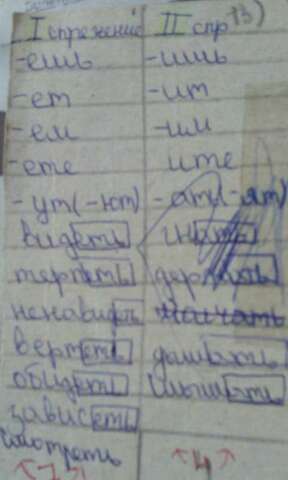 I спряжение II спр
-ешь -ишь
-ет -ит
-ем -им
-ете ите
-ут(-ют) -ат(-ят)
видеть гнать
терпеть держать
ненавидеть
вертеть дышать
обидеть слышать
зависеть
смотреть
7 4